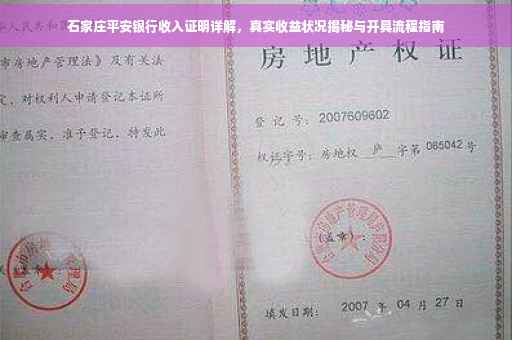 石家庄平安银行收入证明详解，真实收益状况揭秘与开具流程指南
人民共和国
市房地产管理法》及有关法
定，对权利人申请登记本证所
审查属实，准予登记，特发此
房地产权证
登记号：2007609602
权证字号：房地权 庐 字第 085042 号
(盖章)：
填发日期： 2007 年 04 月 27 日